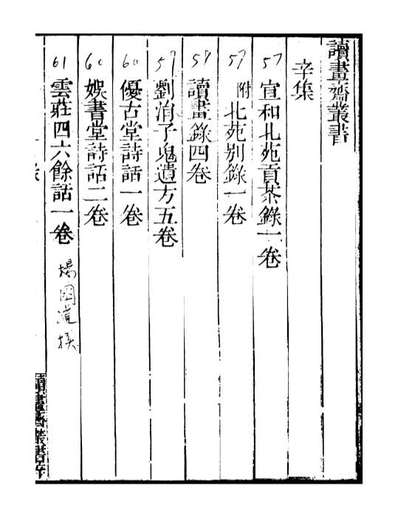 讀畫齋叢書
辛集
57 宣和北苑貢茶錄一卷
57 附 北苑別錄一卷
58 讀畫錄四卷
59 劉涓子鬼遺方五卷
60 優古堂詩話一卷
60 娛書堂詩話二卷
61 雲莊四六餘話一卷 楊囦道撰